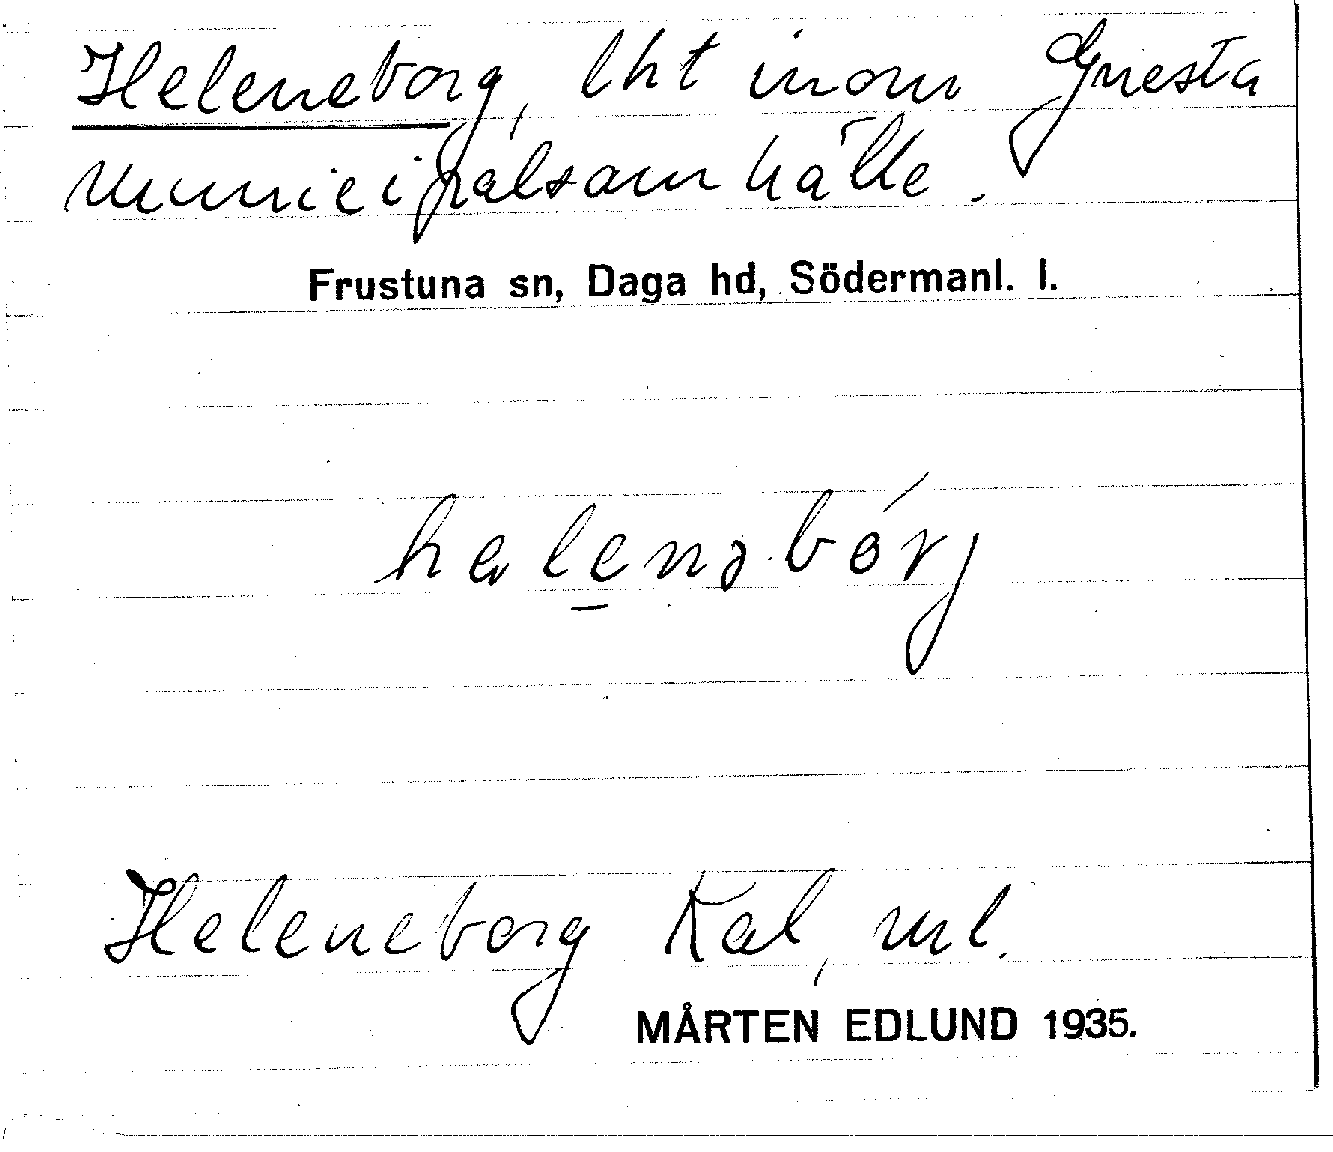 Heleneborg, lht inom Gnesta
municipalsamhälle.
Frustuna sn, Daga hd, Södermanl. l.
helenəbórj
Heleneborg Kal, ml.
MÅRTEN EDLUND 1935.